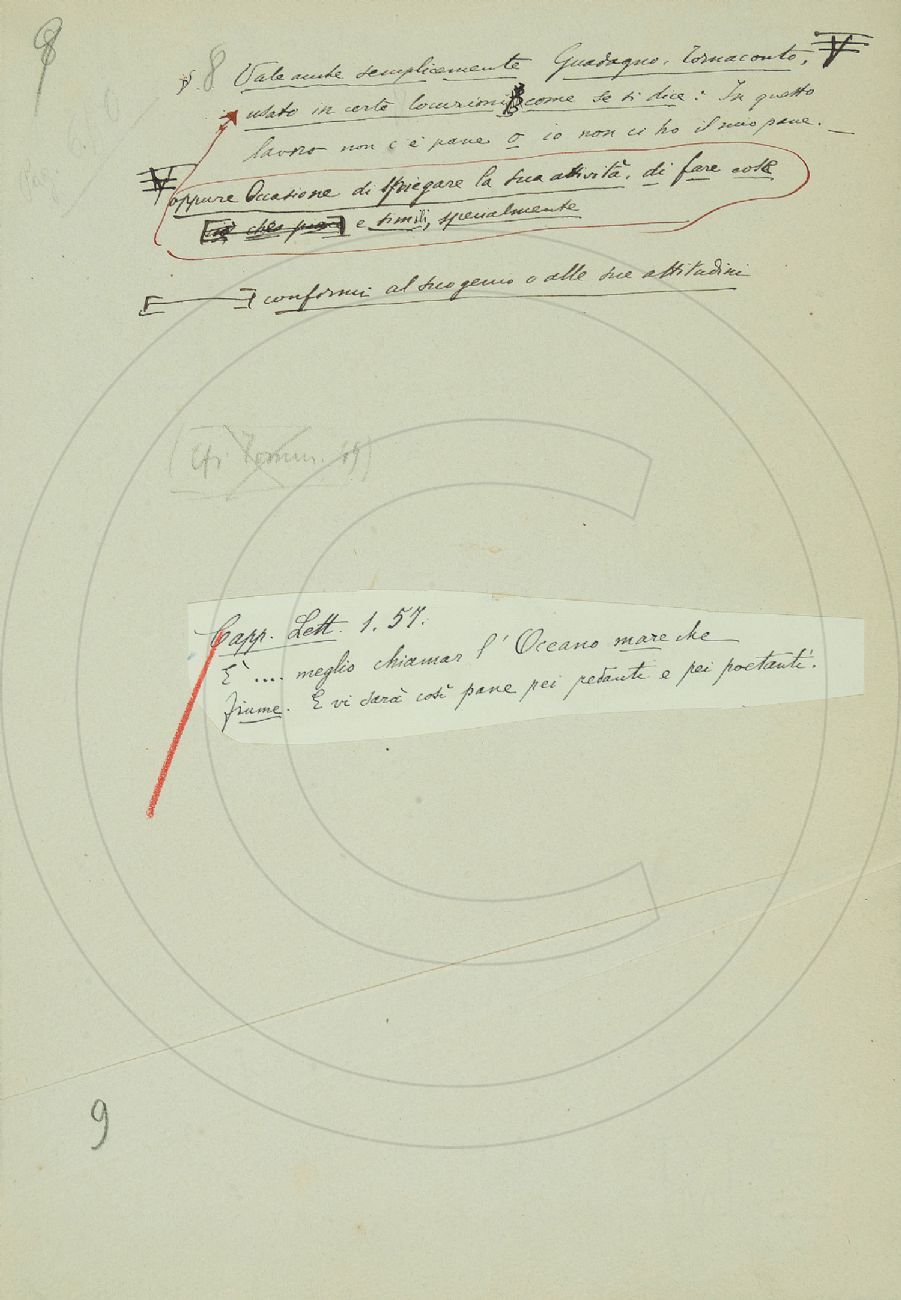 8
§ 8 Vale anche semplicemente Guadagno, Tornaconto,
usato in certe locuzioni come se si dice: In questo
lavoro non c'è pane o io non ci ho il mio pane. —
oppure Occasione di spiegare la sua attività, di fare cose
e simili, specialmente
conformi al suo genio o alle sue attitudini
(Cfr. Tommas. 19)
Capp. Lett. 1. 57.
È .... meglio chiamar l'Oceano mare che
fiume. E vi sarà così pane pei pedanti e pei poetanti.
9